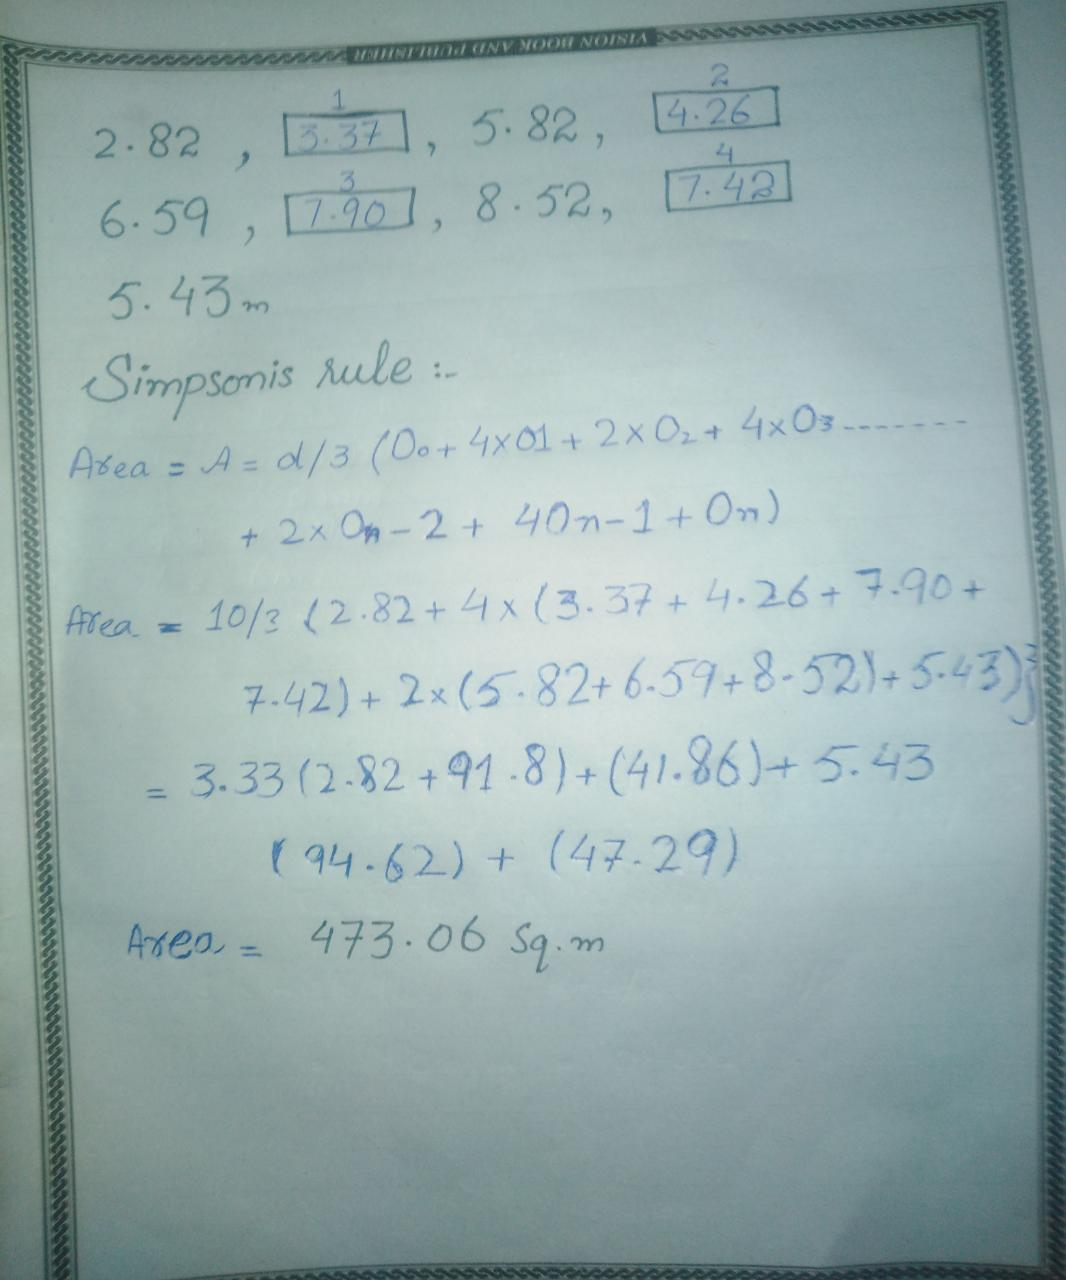 VISION BOOK AND PUBLISHER
2.82 , 1 3.37 , 5.82 , 2 4.26
6.59 , 3 7.90 , 8.52, 4 7.42
5.43m
Simpsonis rule :-
Area = A = d/3 (O0 + 4×01 + 2×O2 + 4×O3 -------
+ 2× On-2 + 4On-1 + On)
Area = 10/3 {2.82 + 4×(3.37 + 4.26 + 7.90 +
7.42) + 2×(5.82+6.59+8.52)+5.43)}
= 3.33 (2.82 +91.8)+(41.86)+ 5.43
(94.62) + (47.29)
Area = 473.06 Sq.m